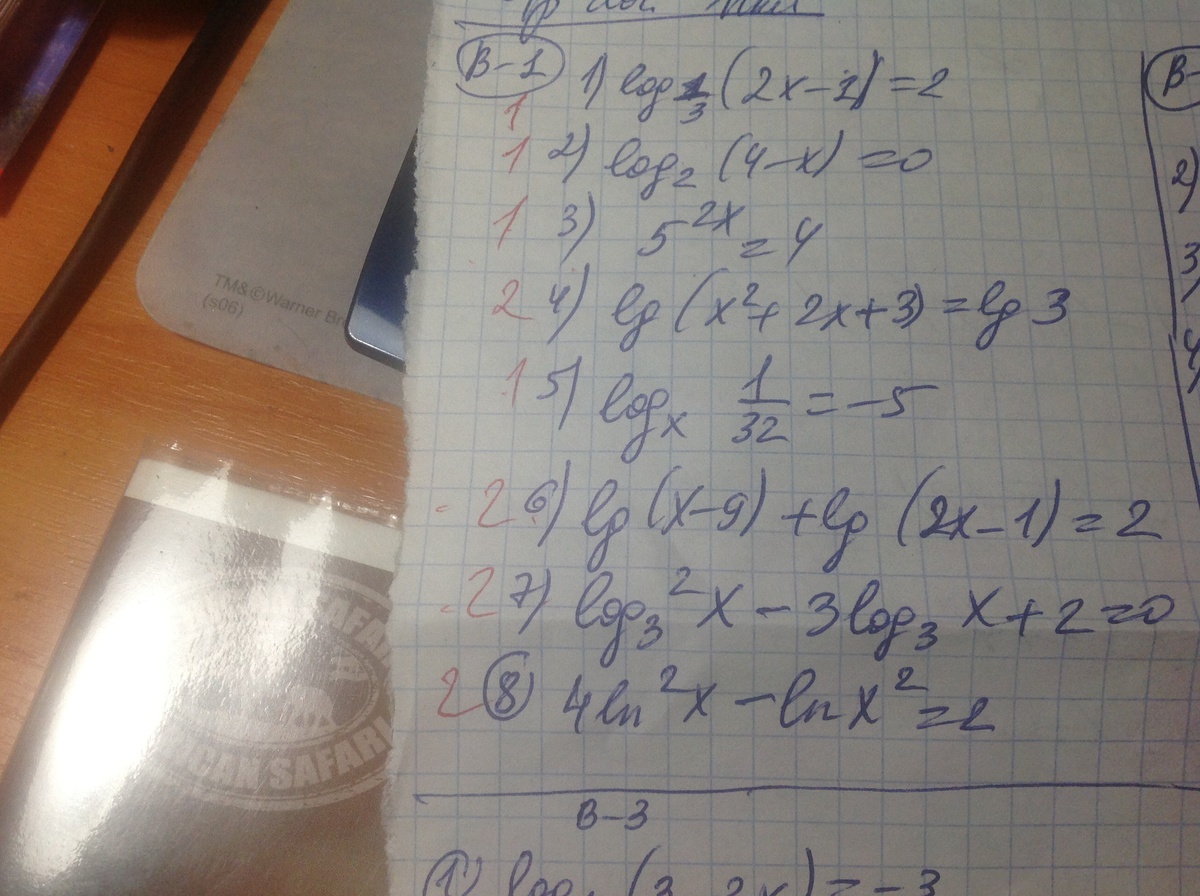 В-1 1) log 1/3 (2x-1) = 2
1
1 2) log₂ (4-x) = 0
1 3) 5^2x = 4
2 4) lg (x²+2x+3) = lg 3
1 5) logₓ 1/32 = -5
- 2 6) lg (x-9) + lg (2x-1) = 2
- 2 7) log₃² x - 3log₃ x + 2 = 0
2 8) 4ln² x - ln x² = 2
В-3
1) log (3-2x) = -3
В-
2)
3)
4)
TM&©Warner Br
(s06)
SAFARI
ICAN SAFARI